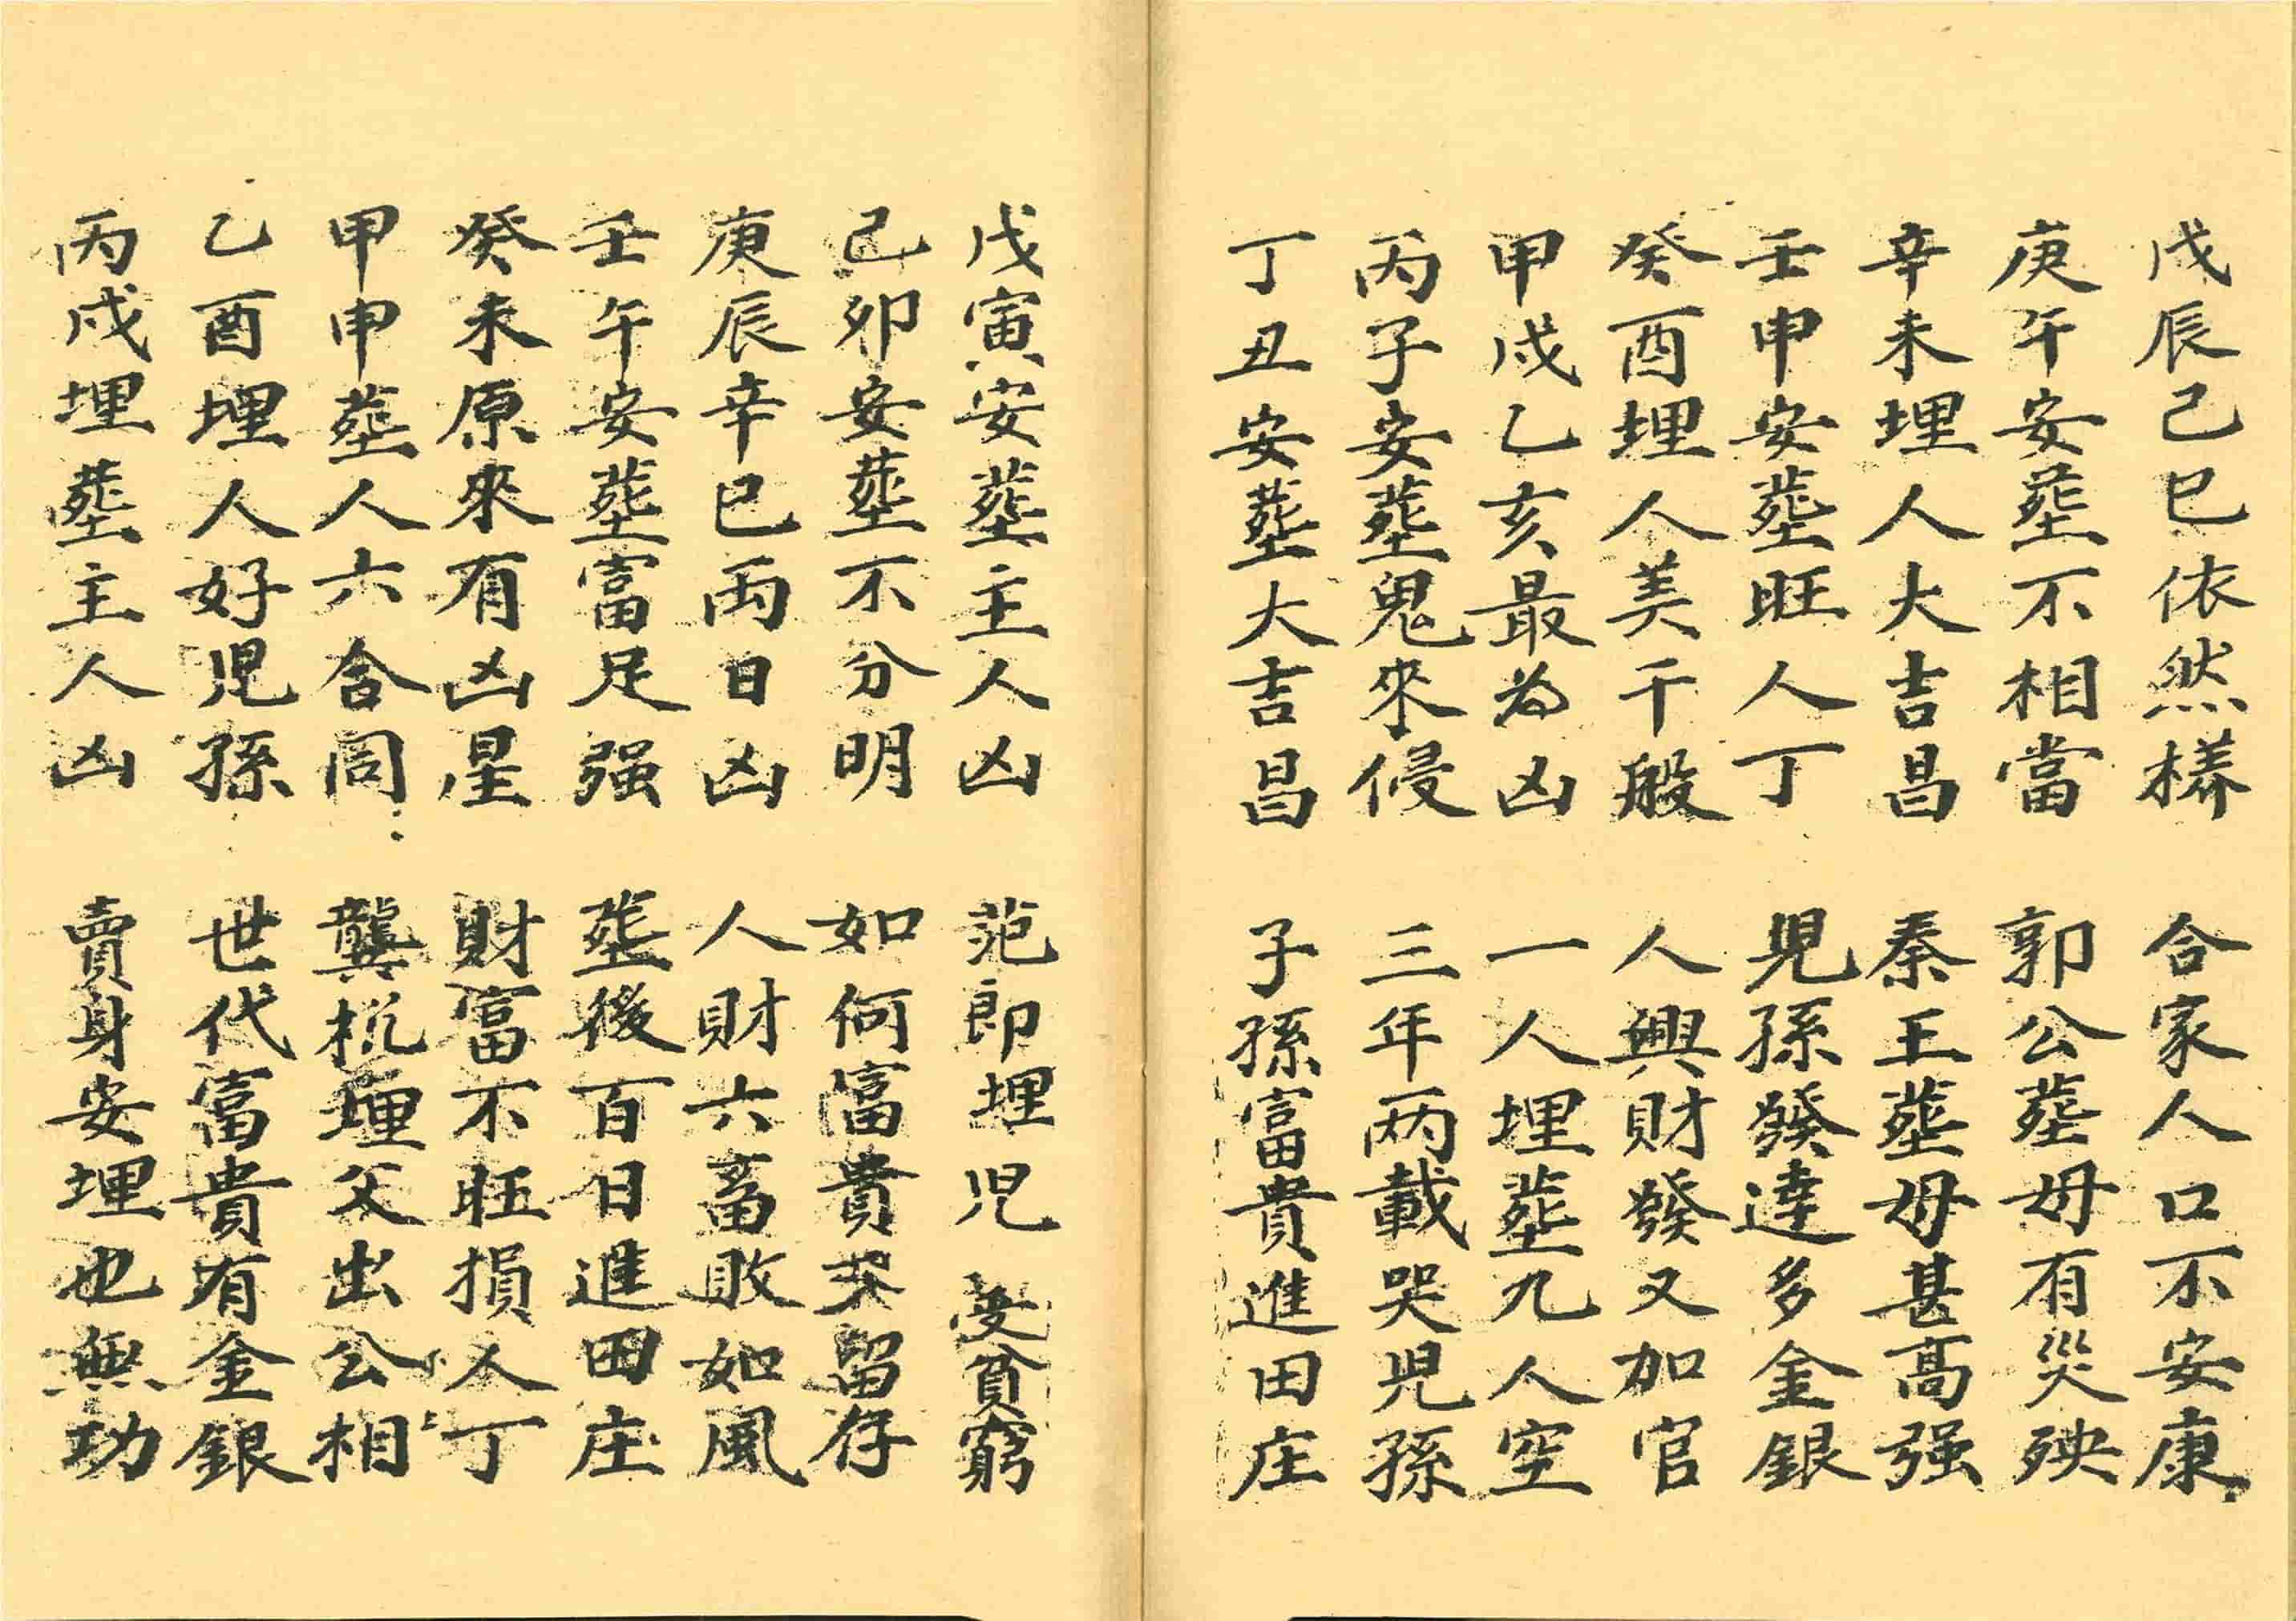 戊辰己巳依然樣　合家人口不安康
庚午安塟不相當　郭公塟母有災殃
辛未埋人大吉昌　秦王塟母甚高强
壬申安塟旺人丁　児孫發達多金銀
癸酉埋人美千般　人興財發又加官
甲戌乙亥最為凶　一人埋塟九人空
丙子安塟鬼來侵　三年两載哭児孫
丁丑安塟大吉昌　子孫富貴進田庄
戊寅安塟主人凶　范郎埋児受貧窮
己卯安塟不分明　如何富貴留存
庚辰辛巳両日凶　人財六畜敗如風
壬午安塟富足强　塟後百日進田庄
癸未原來有凶星　財富不旺損人丁
甲申塟人六合同　龔杭埋父出公相
乙酉埋人好児孫　世代富貴有金銀
丙戌埋塟主人凶　賣身安埋也無功